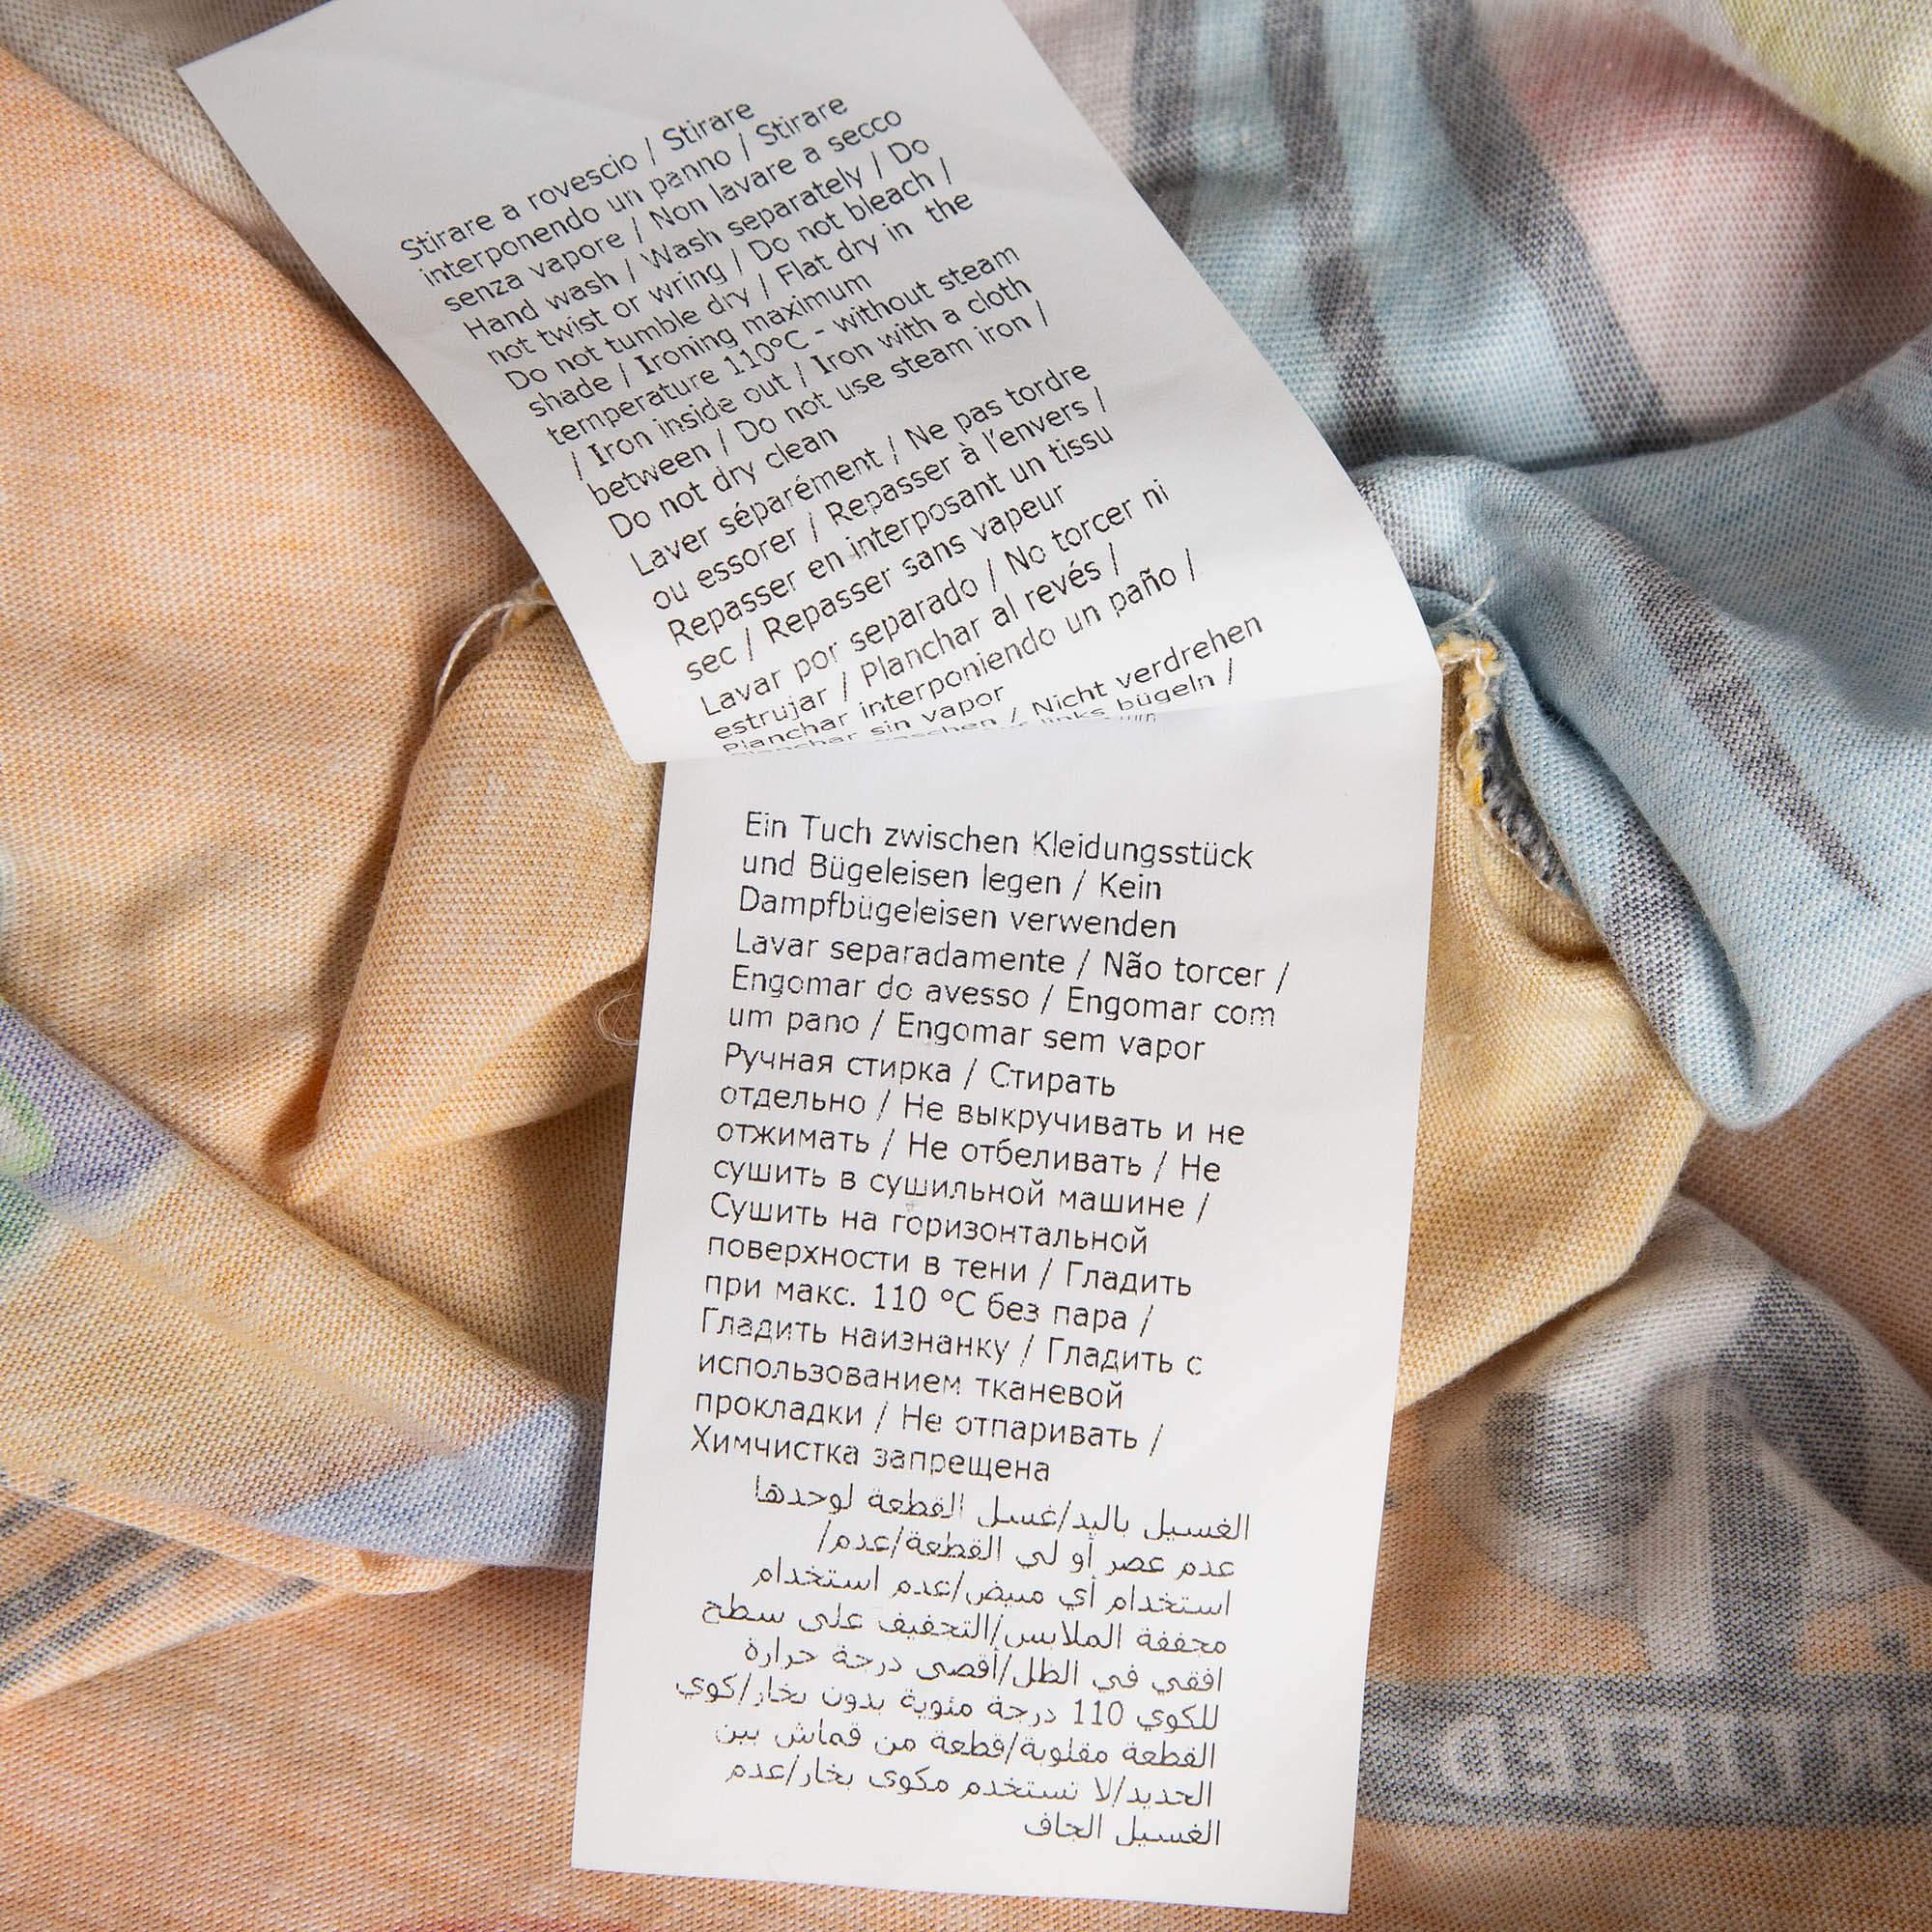 Stirare a rovescio / Stirare
interponendo un panno / Stirare
senza vapore / Non lavare a secco
Hand wash / Wash separately / Do
not twist or wring / Do not bleach /
Do not tumble dry / Flat dry in the
shade / Ironing maximum
temperature 110°C - without steam
/ Iron inside out / Iron with a cloth
between / Do not use steam iron /
Do not dry clean
Laver séparément / Ne pas tordre
ou essorer / Repasser à l'envers /
Repasser en interposant un tissu
sec / Repasser sans vapeur
Lavar por separado / No torcer ni
estrujar / Planchar al revés /
Planchar interponiendo un paño /
Planchar sin vapor
/ Nicht verdrehen
links bügeln /
Ein Tuch zwischen Kleidungsstück
und Bügeleisen legen / Kein
Dampfbügeleisen verwenden
Lavar separadamente / Não torcer /
Engomar do avesso / Engomar com
um pano / Engomar sem vapor
Ручная стирка / Стирать
отдельно / Не выкручивать и не
отжимать / Не отбеливать / Не
сушить в сушильной машине /
Сушить на горизонтальной
поверхности в тени / Гладить
при макс. 110 °C без пара /
Гладить наизнанку / Гладить с
использованием тканевой
прокладки / Не отпаривать /
Химчистка запрещена
الغسيل باليد/غسل القطعة لوحدها
عدم عصر أو لي القطعة/عدم/
استخدام أي مبيض/عدم استخدام
مجففة الملابس/التجفيف على سطح
افقي في الظل/أقصى درجة حرارة
للكوي 110 درجة مئوية بدون بخار/كوي
القطعة مقلوبة/قطعة من قماش بين
الحديد/لا تستخدم مكوى بخار/عدم
الغسيل الجاف